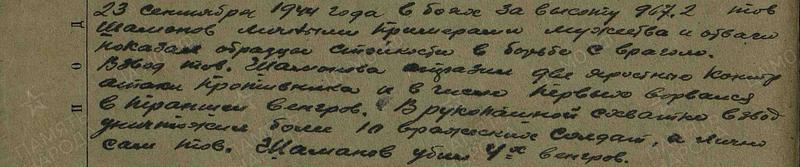 23 сентября 1944 года в боях за высоту 967,2 тов
Шаманов личными примерами мужества и отваги
показал образцы стойкости в борьбе с врагом.
Взвод тов. Шаманова отразил две яростные контр
атаки противника и в числе первых ворвался
в траншеи венгров. В рукопашной схватке взвод
уничтожил более 10 вражеских солдат, а лично
сам тов. Шаманов убил 4х венгров.
П О Д